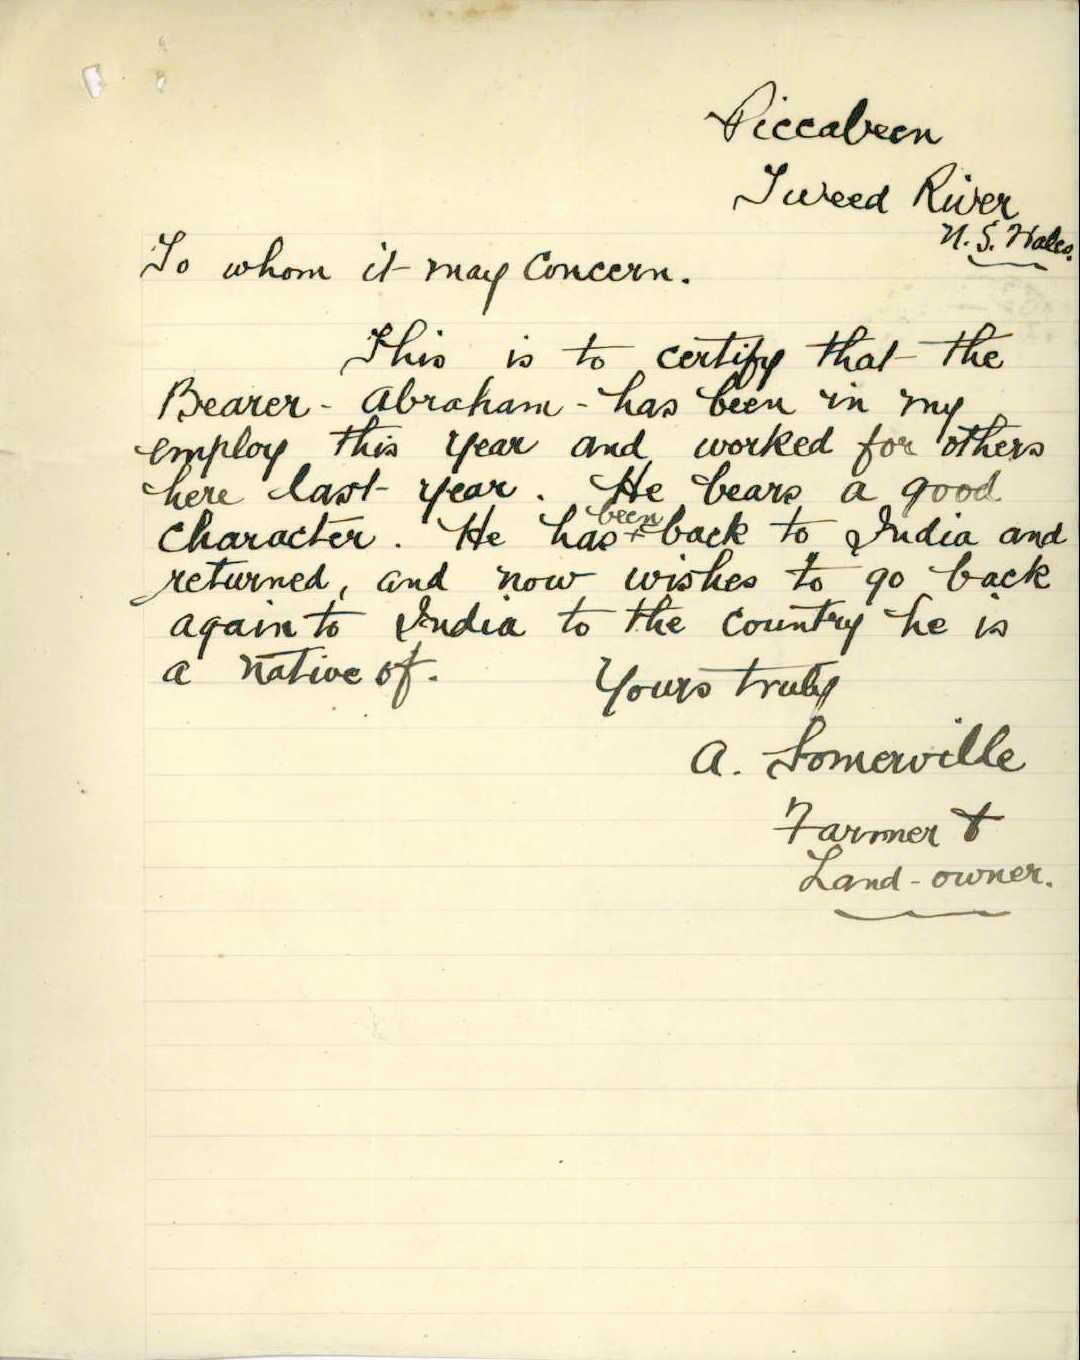 Piccabeen
Tweed River
N. S. Wales.
To whom it may Concern.
This is to certify that the
Bearer - Abraham - has been in my
employ this year and worked for others
here last year. He bears a good
Character. He has been back to India and
returned, and now wishes to go back
again to India to the Country he is
a native of.
Yours truly
A. Somerville
Farmer &
Land-owner.